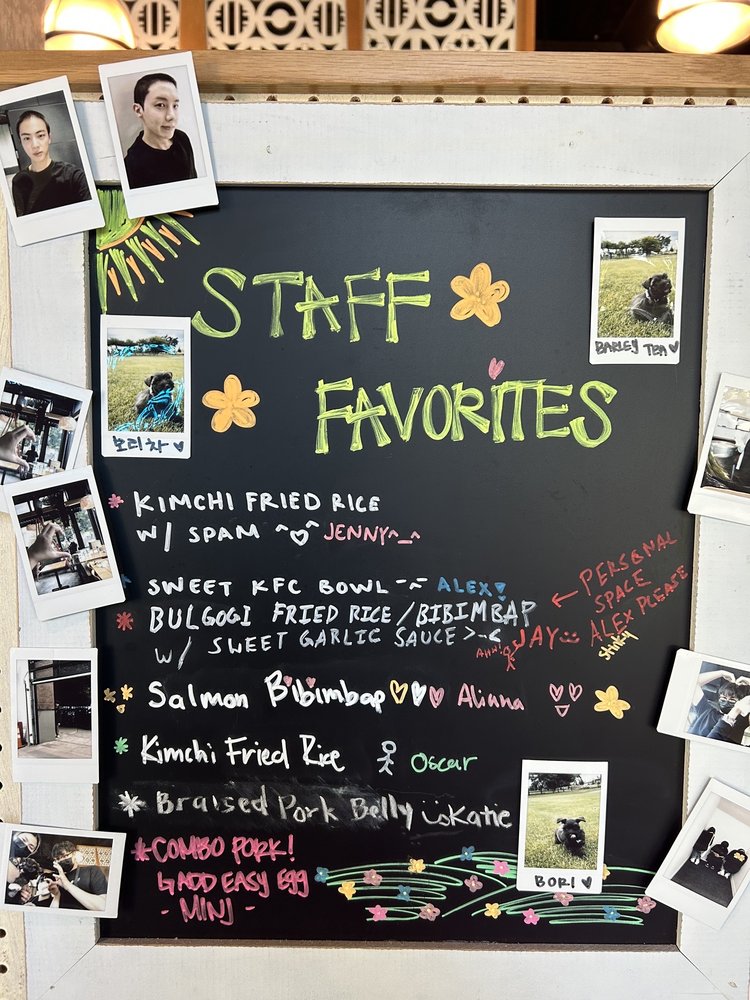 STAFF
FAVORITES
BARLEY TEA ♡
보리차 ♡
* KIMCHI FRIED RICE
W/ SPAM ^♡^ JENNY^_^
SWEET KFC BOWL ~~ ALEX!
* BULGOGI FRIED RICE/BIBIMBAP
W/ SWEET GARLIC SAUCE >-< JAY
← PERSONAL
SPACE
ALEX PLEASE
Stinky
AHH!
Salmon Bibimbap ♡♡♡ Alianna
* Kimchi Fried Rice Oscar
* Braised Pork Belly Katie
* COMBO PORK!
↳ ADD EASY EGG
- MINJ -
BORI ♡